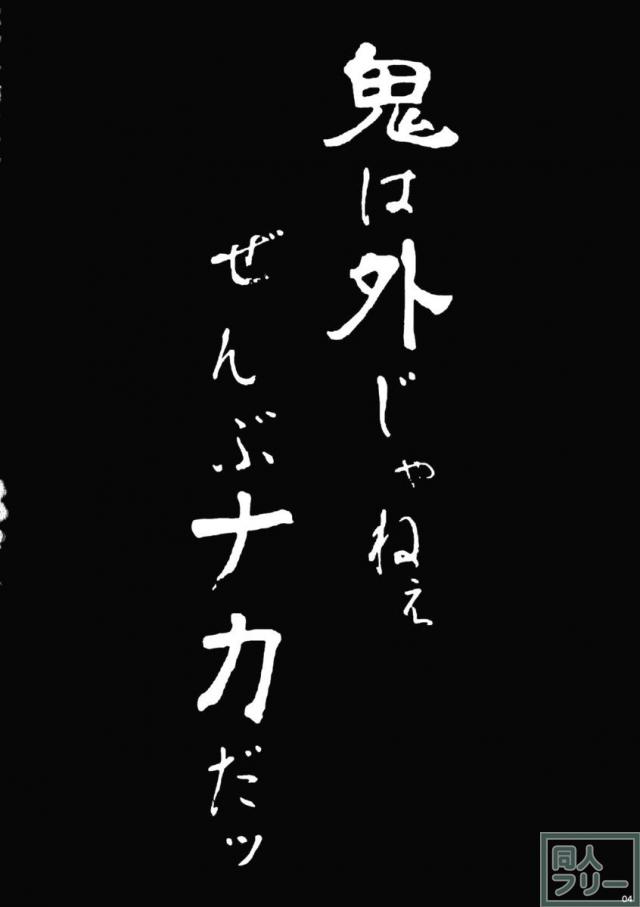 鬼は外じゃねぇ
ぜんぶナカだッ
同人
フリー
04